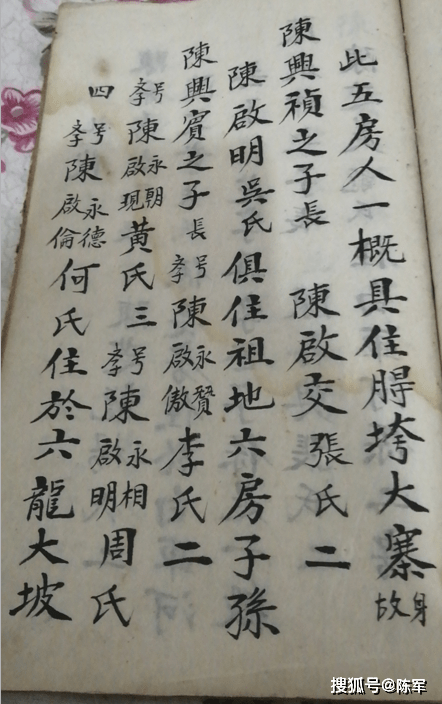 此五房人一概具住垮大寨身故
陳興禎之子長 陳啟交張氏二
陳啟明吳氏俱住祖地六房子孫
陳興賓之子長号孝陳永贊啟傲李氏二
号孝陳永朝啟現黃氏三号孝陳永相啟明周氏
四号孝陳永德啟倫何氏住於六龍大坡
搜狐号@陈军